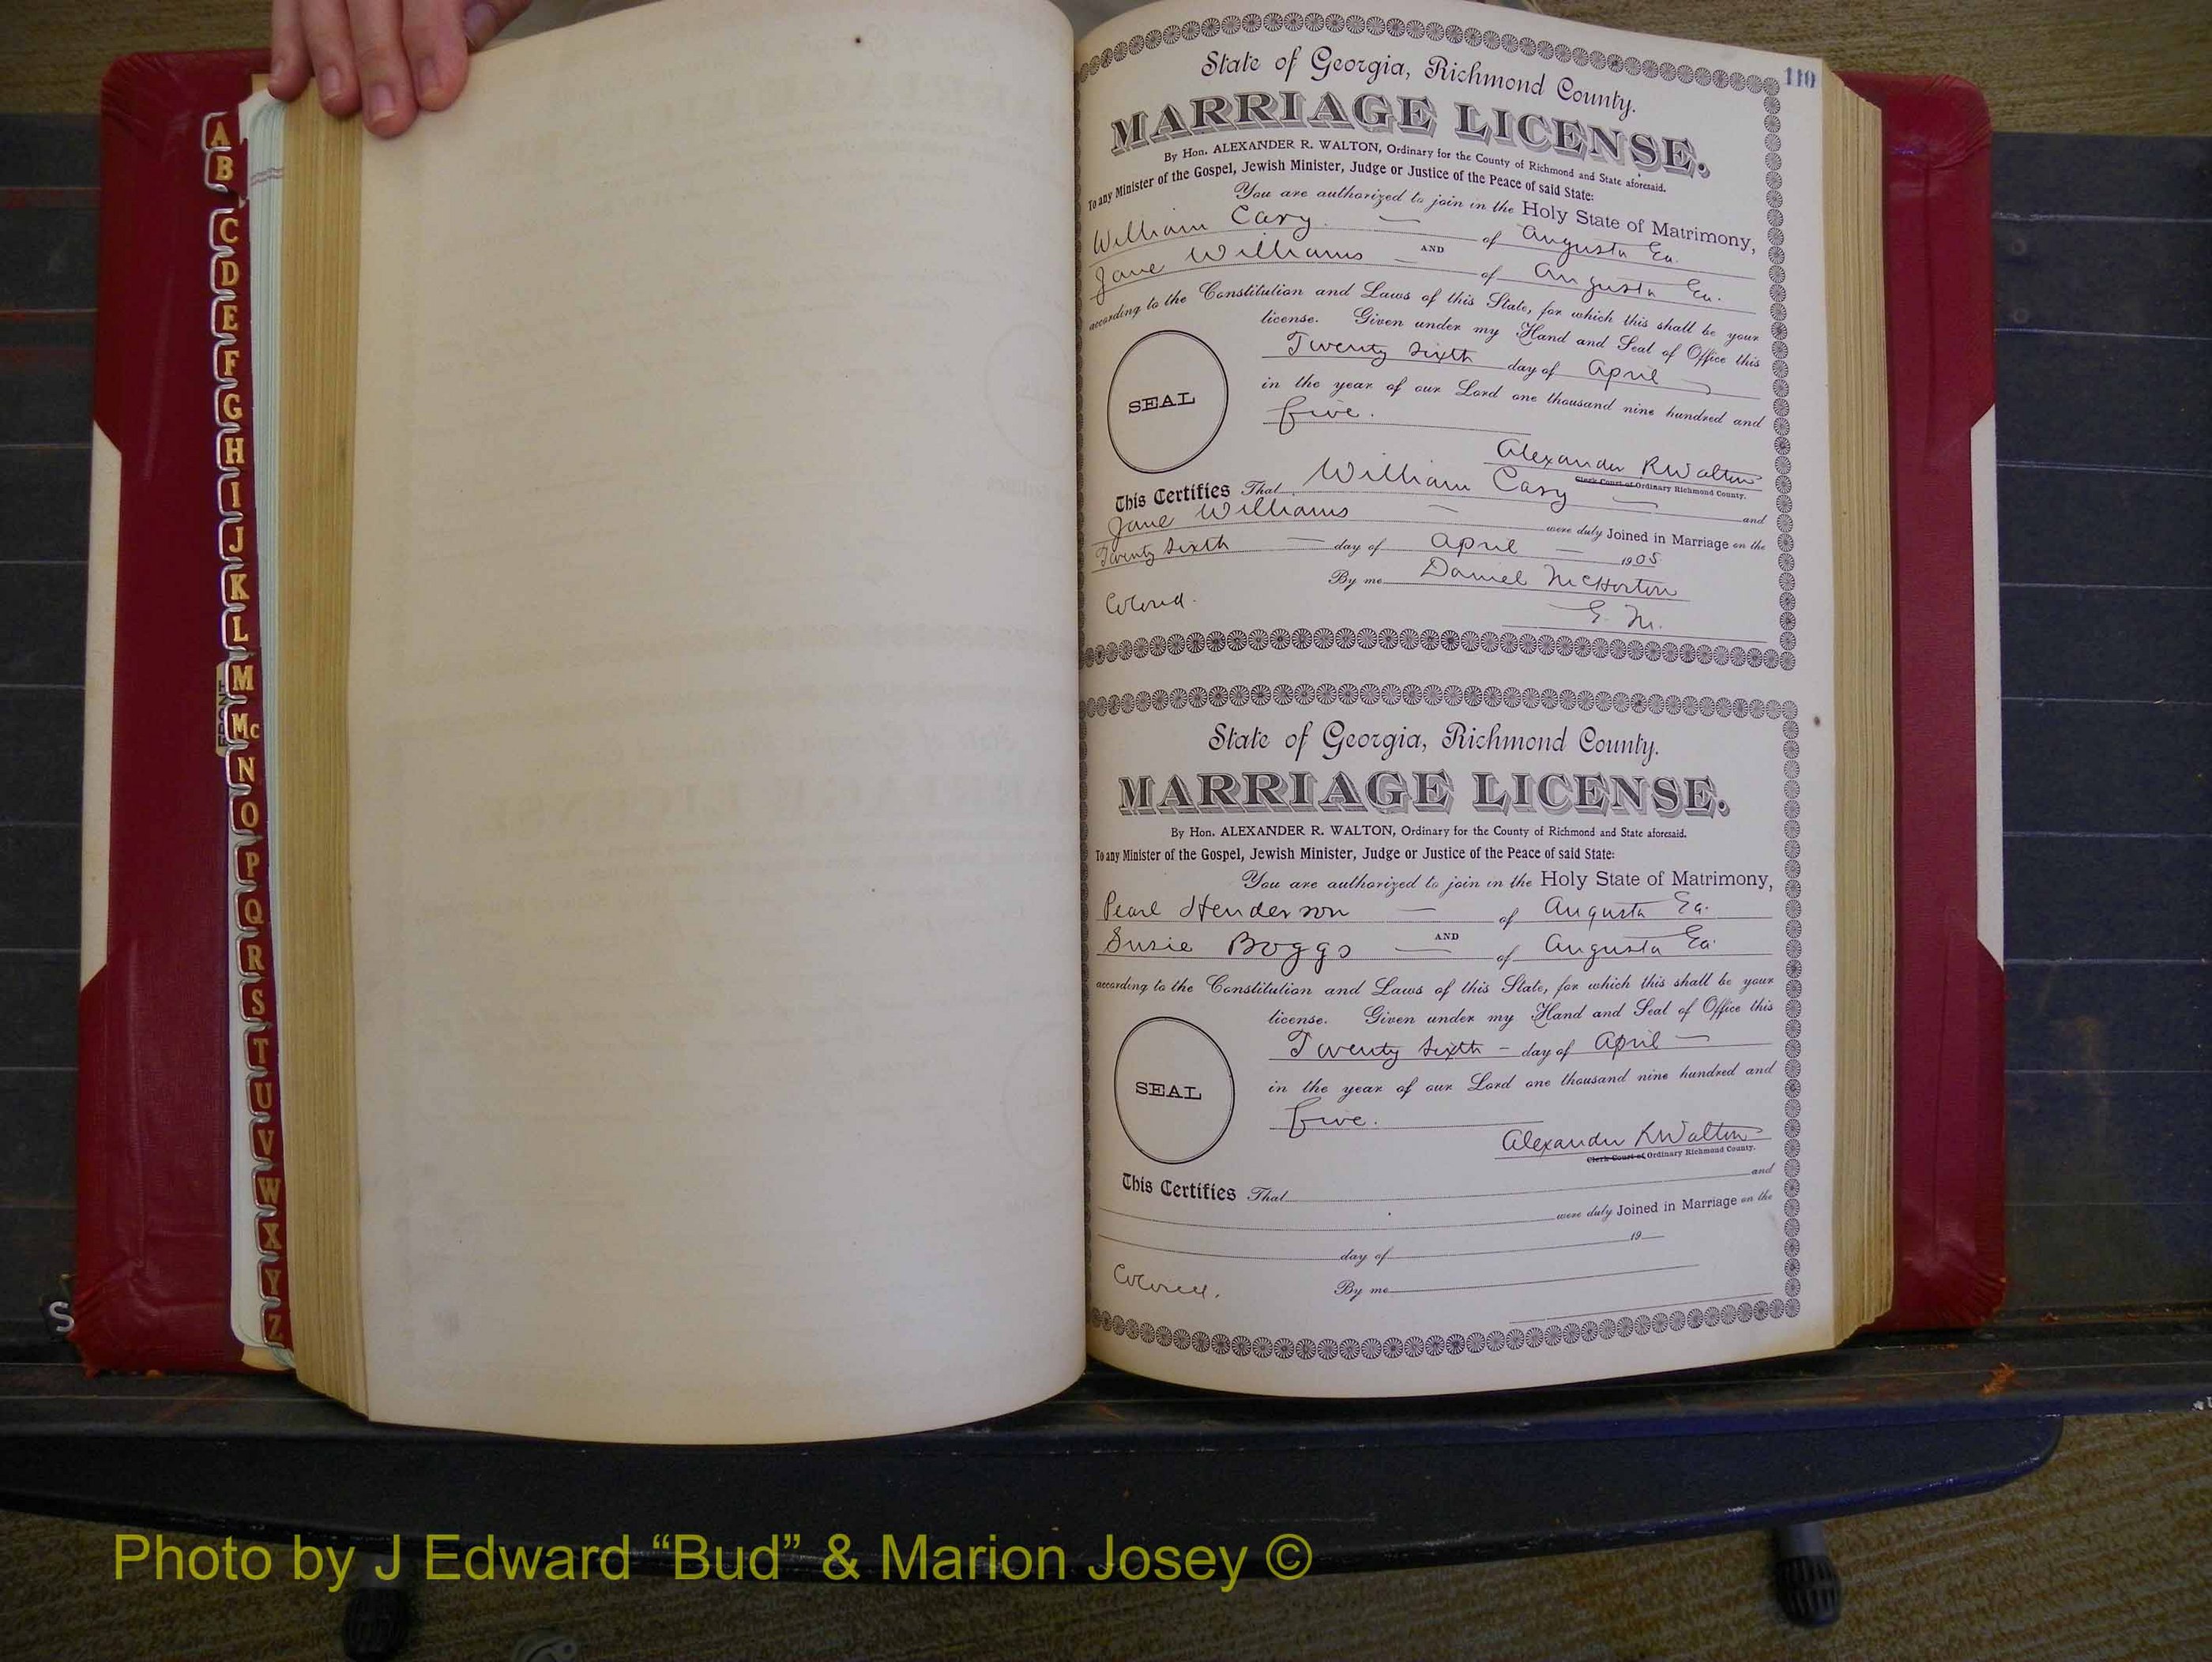 A
B
C
D
E
F
G
H
I
J
K
L
M
Mc
N
O
P
Q
R
S
T
U
V
W
X
Y
Z
110
State of Georgia, Richmond County.
MARRIAGE LICENSE.
By Hon. ALEXANDER R. WALTON, Ordinary for the County of Richmond and State aforesaid.
To any Minister of the Gospel, Jewish Minister, Judge or Justice of the Peace of said State:
You are authorized to join in the Holy State of Matrimony,
William Cary of Augusta Ga.
AND
Jane Williams of Augusta Ga.
according to the Constitution and Laws of this State, for which this shall be your
license. Given under my Hand and Seal of Office this
Twenty Sixth day of April
in the year of our Lord one thousand nine hundred and
five.
SEAL
Alexander R Walton
Clerk Court of Ordinary Richmond County.
This Certifies That William Cary and
Jane Williams were duly Joined in Marriage on the
Twenty Sixth day of April 1905
By me Daniel McHorton
Colored.
G. M.
State of Georgia, Richmond County.
MARRIAGE LICENSE.
By Hon. ALEXANDER R. WALTON, Ordinary for the County of Richmond and State aforesaid.
To any Minister of the Gospel, Jewish Minister, Judge or Justice of the Peace of said State:
You are authorized to join in the Holy State of Matrimony,
Pearl Henderson of Augusta Ga.
AND
Susie Boggs of Augusta Ga.
according to the Constitution and Laws of this State, for which this shall be your
license. Given under my Hand and Seal of Office this
Twenty Sixth - day of April
in the year of our Lord one thousand nine hundred and
five.
SEAL
Alexander R Walton
Clerk Court of Ordinary Richmond County.
This Certifies That and
were duly Joined in Marriage on the
day of 19
Colored.
By me
Photo by J Edward “Bud” & Marion Josey ©